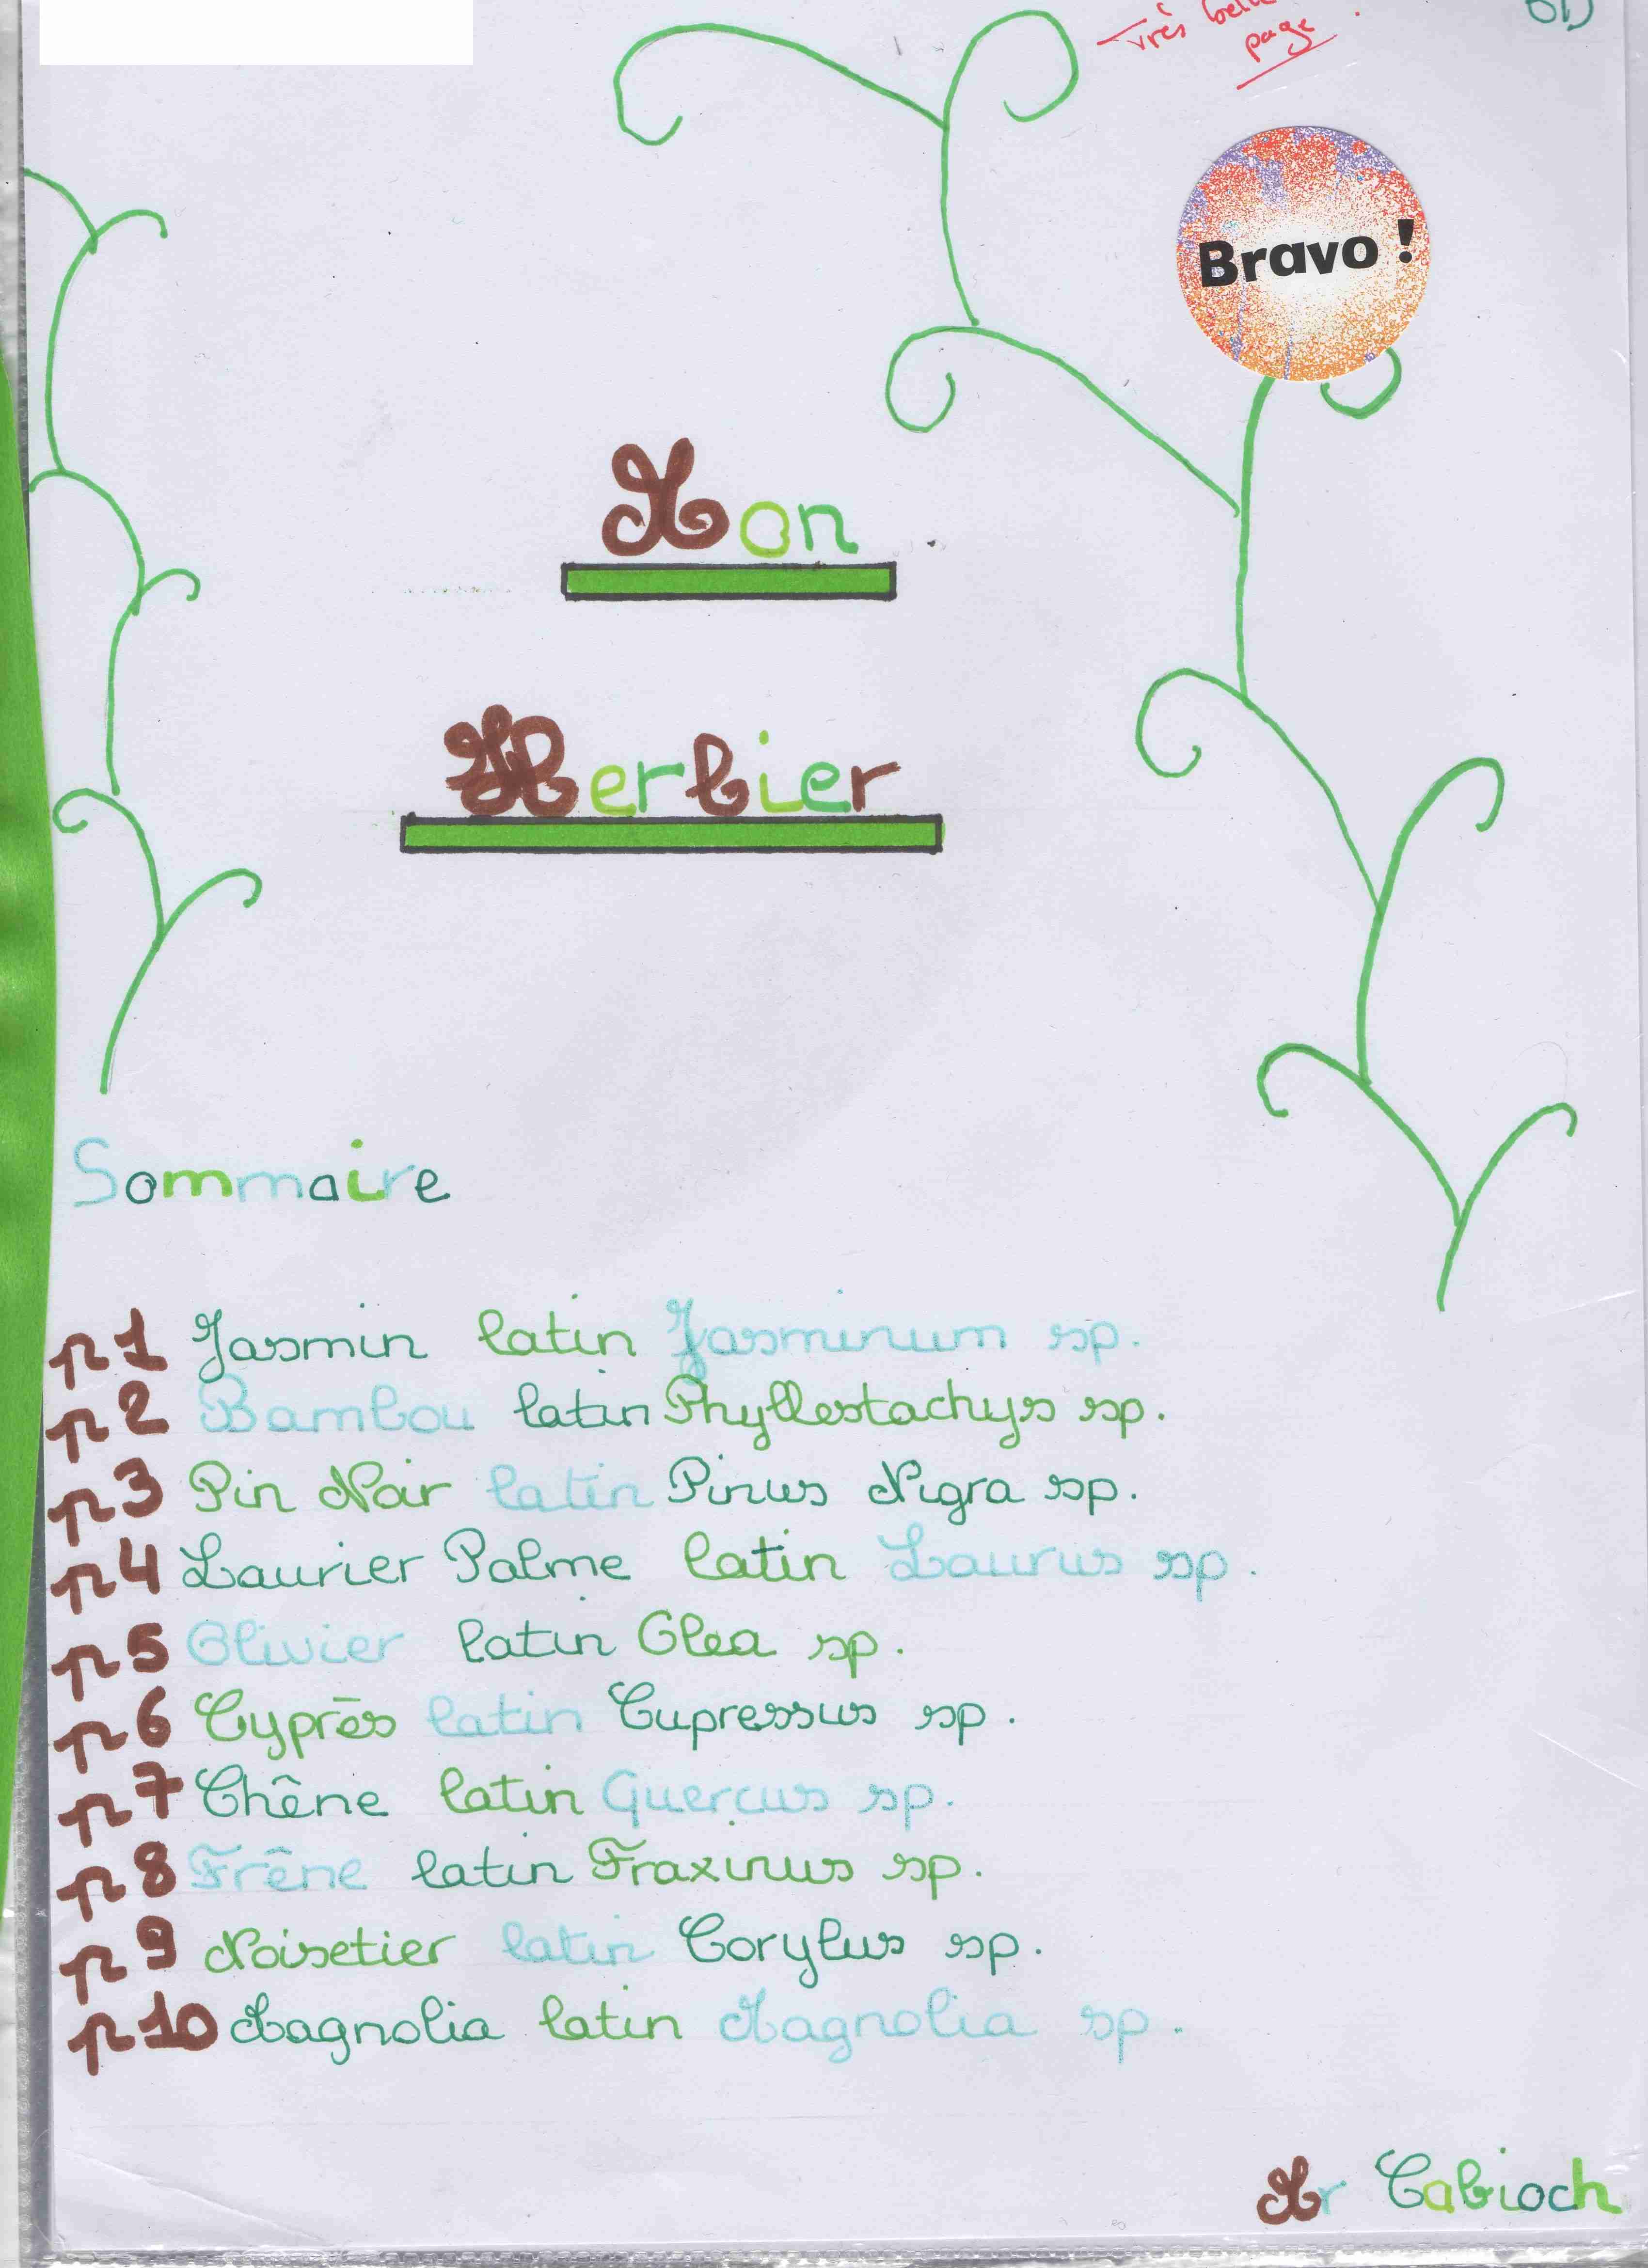 Très belle
page
6D
Bravo !
Mon
Herbier
Sommaire
p1 Jasmin latin Jasminum sp.
p2 Bambou latin Phyllostachys sp.
p3 Pin Noir latin Pinus Nigra sp.
p4 Laurier Palme latin Laurus sp.
p5 Olivier latin Olea sp.
p6 Cyprès latin Cupressus sp.
p7 Chêne latin Quercus sp.
p8 Frêne latin Fraxinus sp.
p9 Noisetier latin Corylus sp.
p10 Magnolia latin Magnolia sp.
Mr Cabioch